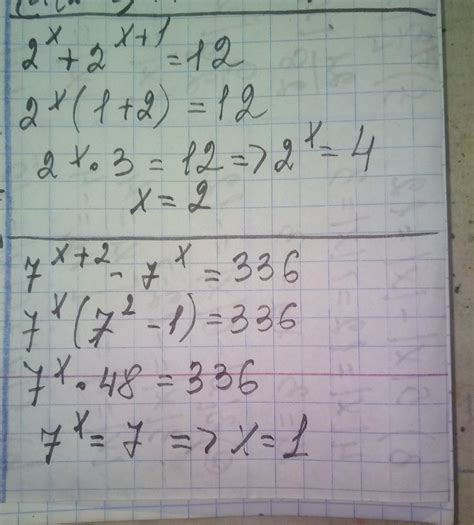 2^x + 2^{x+1} = 12
2^x (1+2) = 12
2^x · 3 = 12 => 2^x = 4
x = 2
7^{x+2} - 7^x = 336
7^x (7^2 - 1) = 336
7^x · 48 = 336
7^x = 7 => x = 1